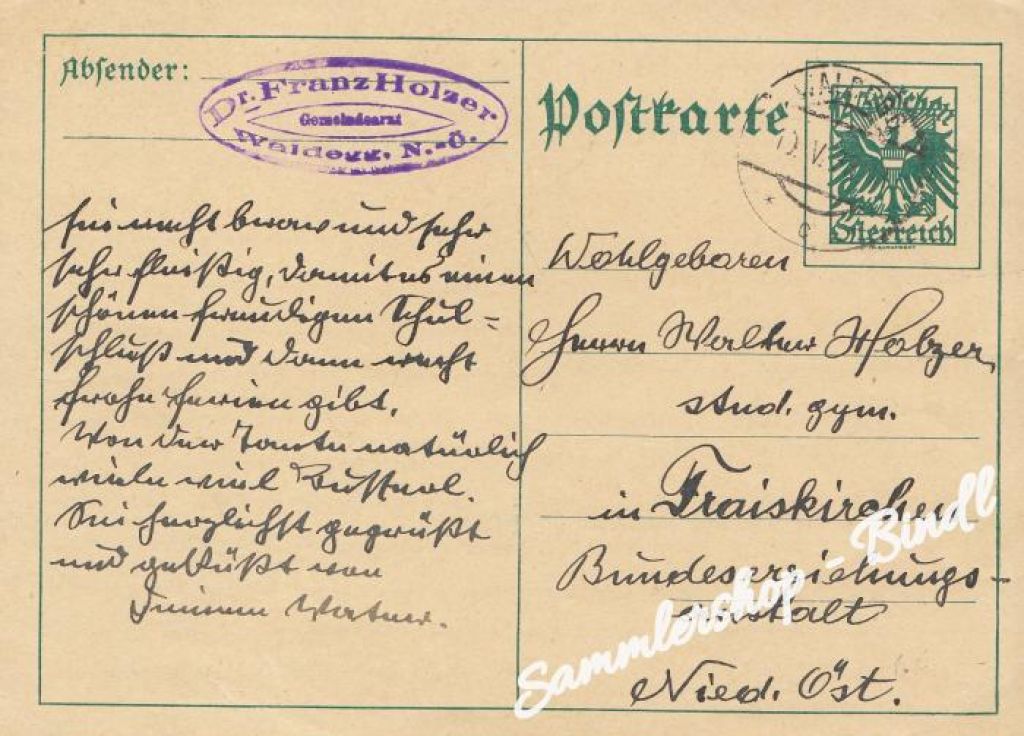 Absender:
Dr. Franz Holzer
Gemeindearzt
Waldegg, N.-Ö.
Sei recht brav und sehr
sehr fleißig, damit es einen
schönen freudigen Schul-
schluß und dann recht
frohe Ferien gibt.
Von der Tante natürlich
viele viel
Sei herzlichst gegrüßt
und geküßt von
Deinem Vater.
Postkarte
Groschen
Österreich
Wohlgeboren
Herrn Walter Holzer
stud. gym.
in Traiskirchen
Bundeserziehungs-
anstalt
Nied. Öst.
Sammlershop - Bindl